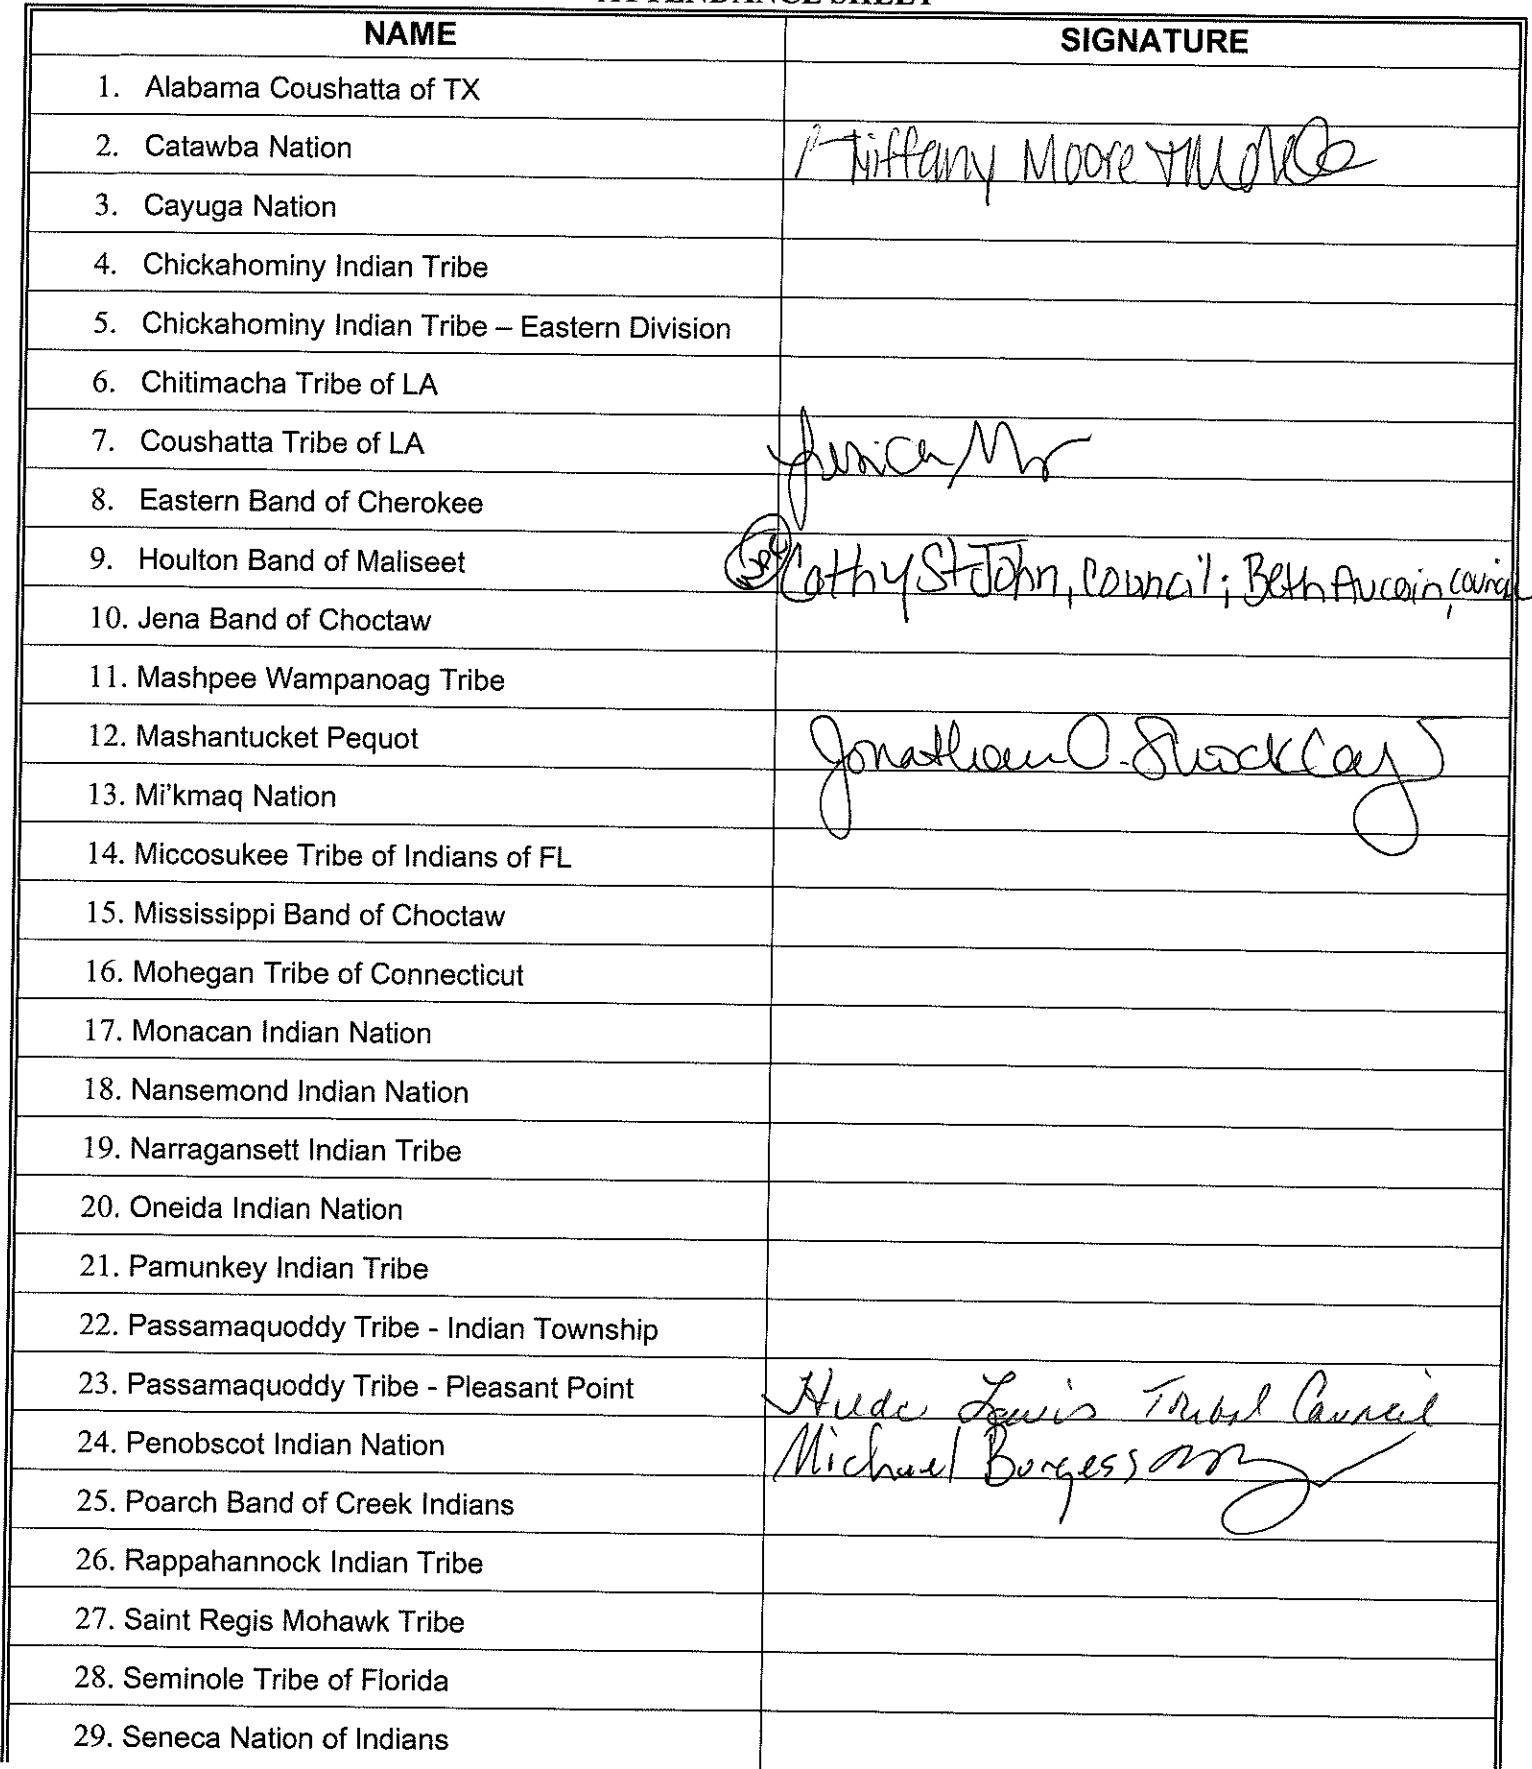 ATTENDANCE SHEET
NAME SIGNATURE
1. Alabama Coushatta of TX
2. Catawba Nation Tiffany Moore
3. Cayuga Nation
4. Chickahominy Indian Tribe
5. Chickahominy Indian Tribe – Eastern Division
6. Chitimacha Tribe of LA
7. Coushatta Tribe of LA
8. Eastern Band of Cherokee
9. Houlton Band of Maliseet Cathy St. John, Council; Beth Aucoin, Council
10. Jena Band of Choctaw
11. Mashpee Wampanoag Tribe
12. Mashantucket Pequot Jonathan
13. Mi'kmaq Nation
14. Miccosukee Tribe of Indians of FL
15. Mississippi Band of Choctaw
16. Mohegan Tribe of Connecticut
17. Monacan Indian Nation
18. Nansemond Indian Nation
19. Narragansett Indian Tribe
20. Oneida Indian Nation
21. Pamunkey Indian Tribe
22. Passamaquoddy Tribe - Indian Township
23. Passamaquoddy Tribe - Pleasant Point Lewis Tribal Council
24. Penobscot Indian Nation Michael Burgess
25. Poarch Band of Creek Indians
26. Rappahannock Indian Tribe
27. Saint Regis Mohawk Tribe
28. Seminole Tribe of Florida
29. Seneca Nation of Indians